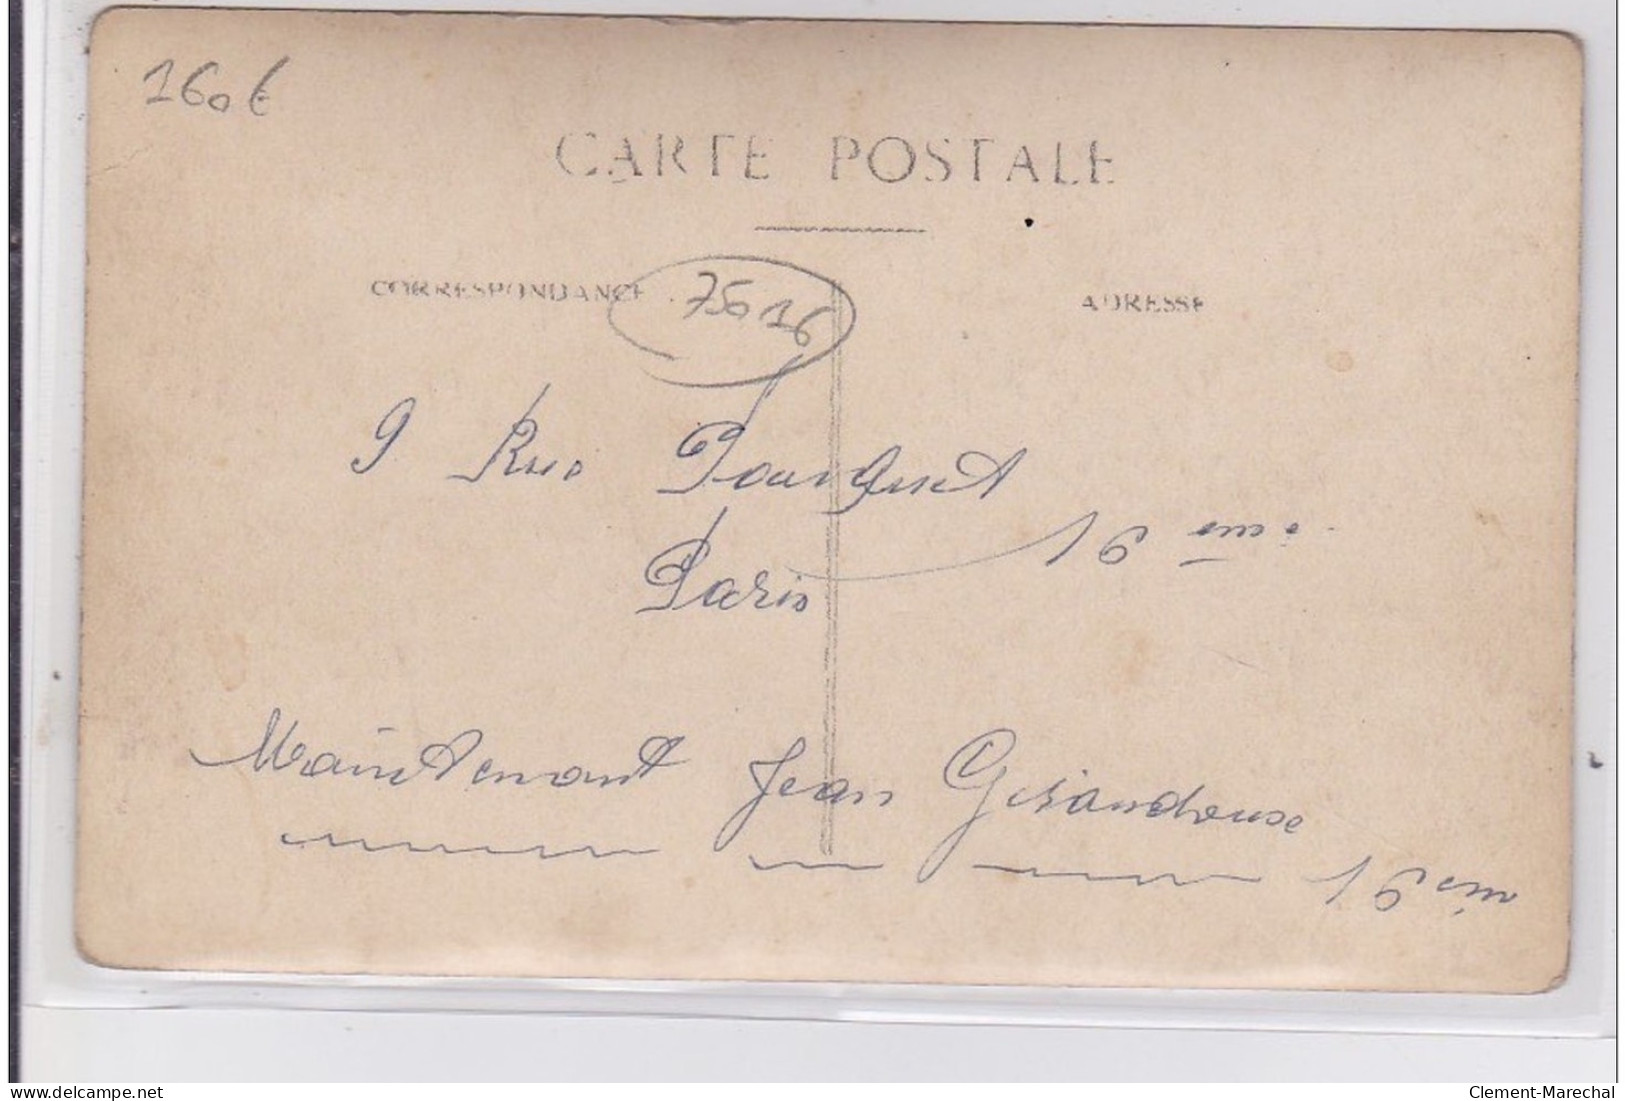 160€
CARTE POSTALE
CORRESPONDANCE
75016
ADRESSE
9 Rue
Paris 16 eme
Maintenant Jean Girandouse
16 em
www.delcampe.net
Clement-Marechal